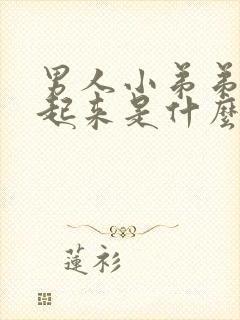 男人小弟弟
起来是什麼
蓮衫